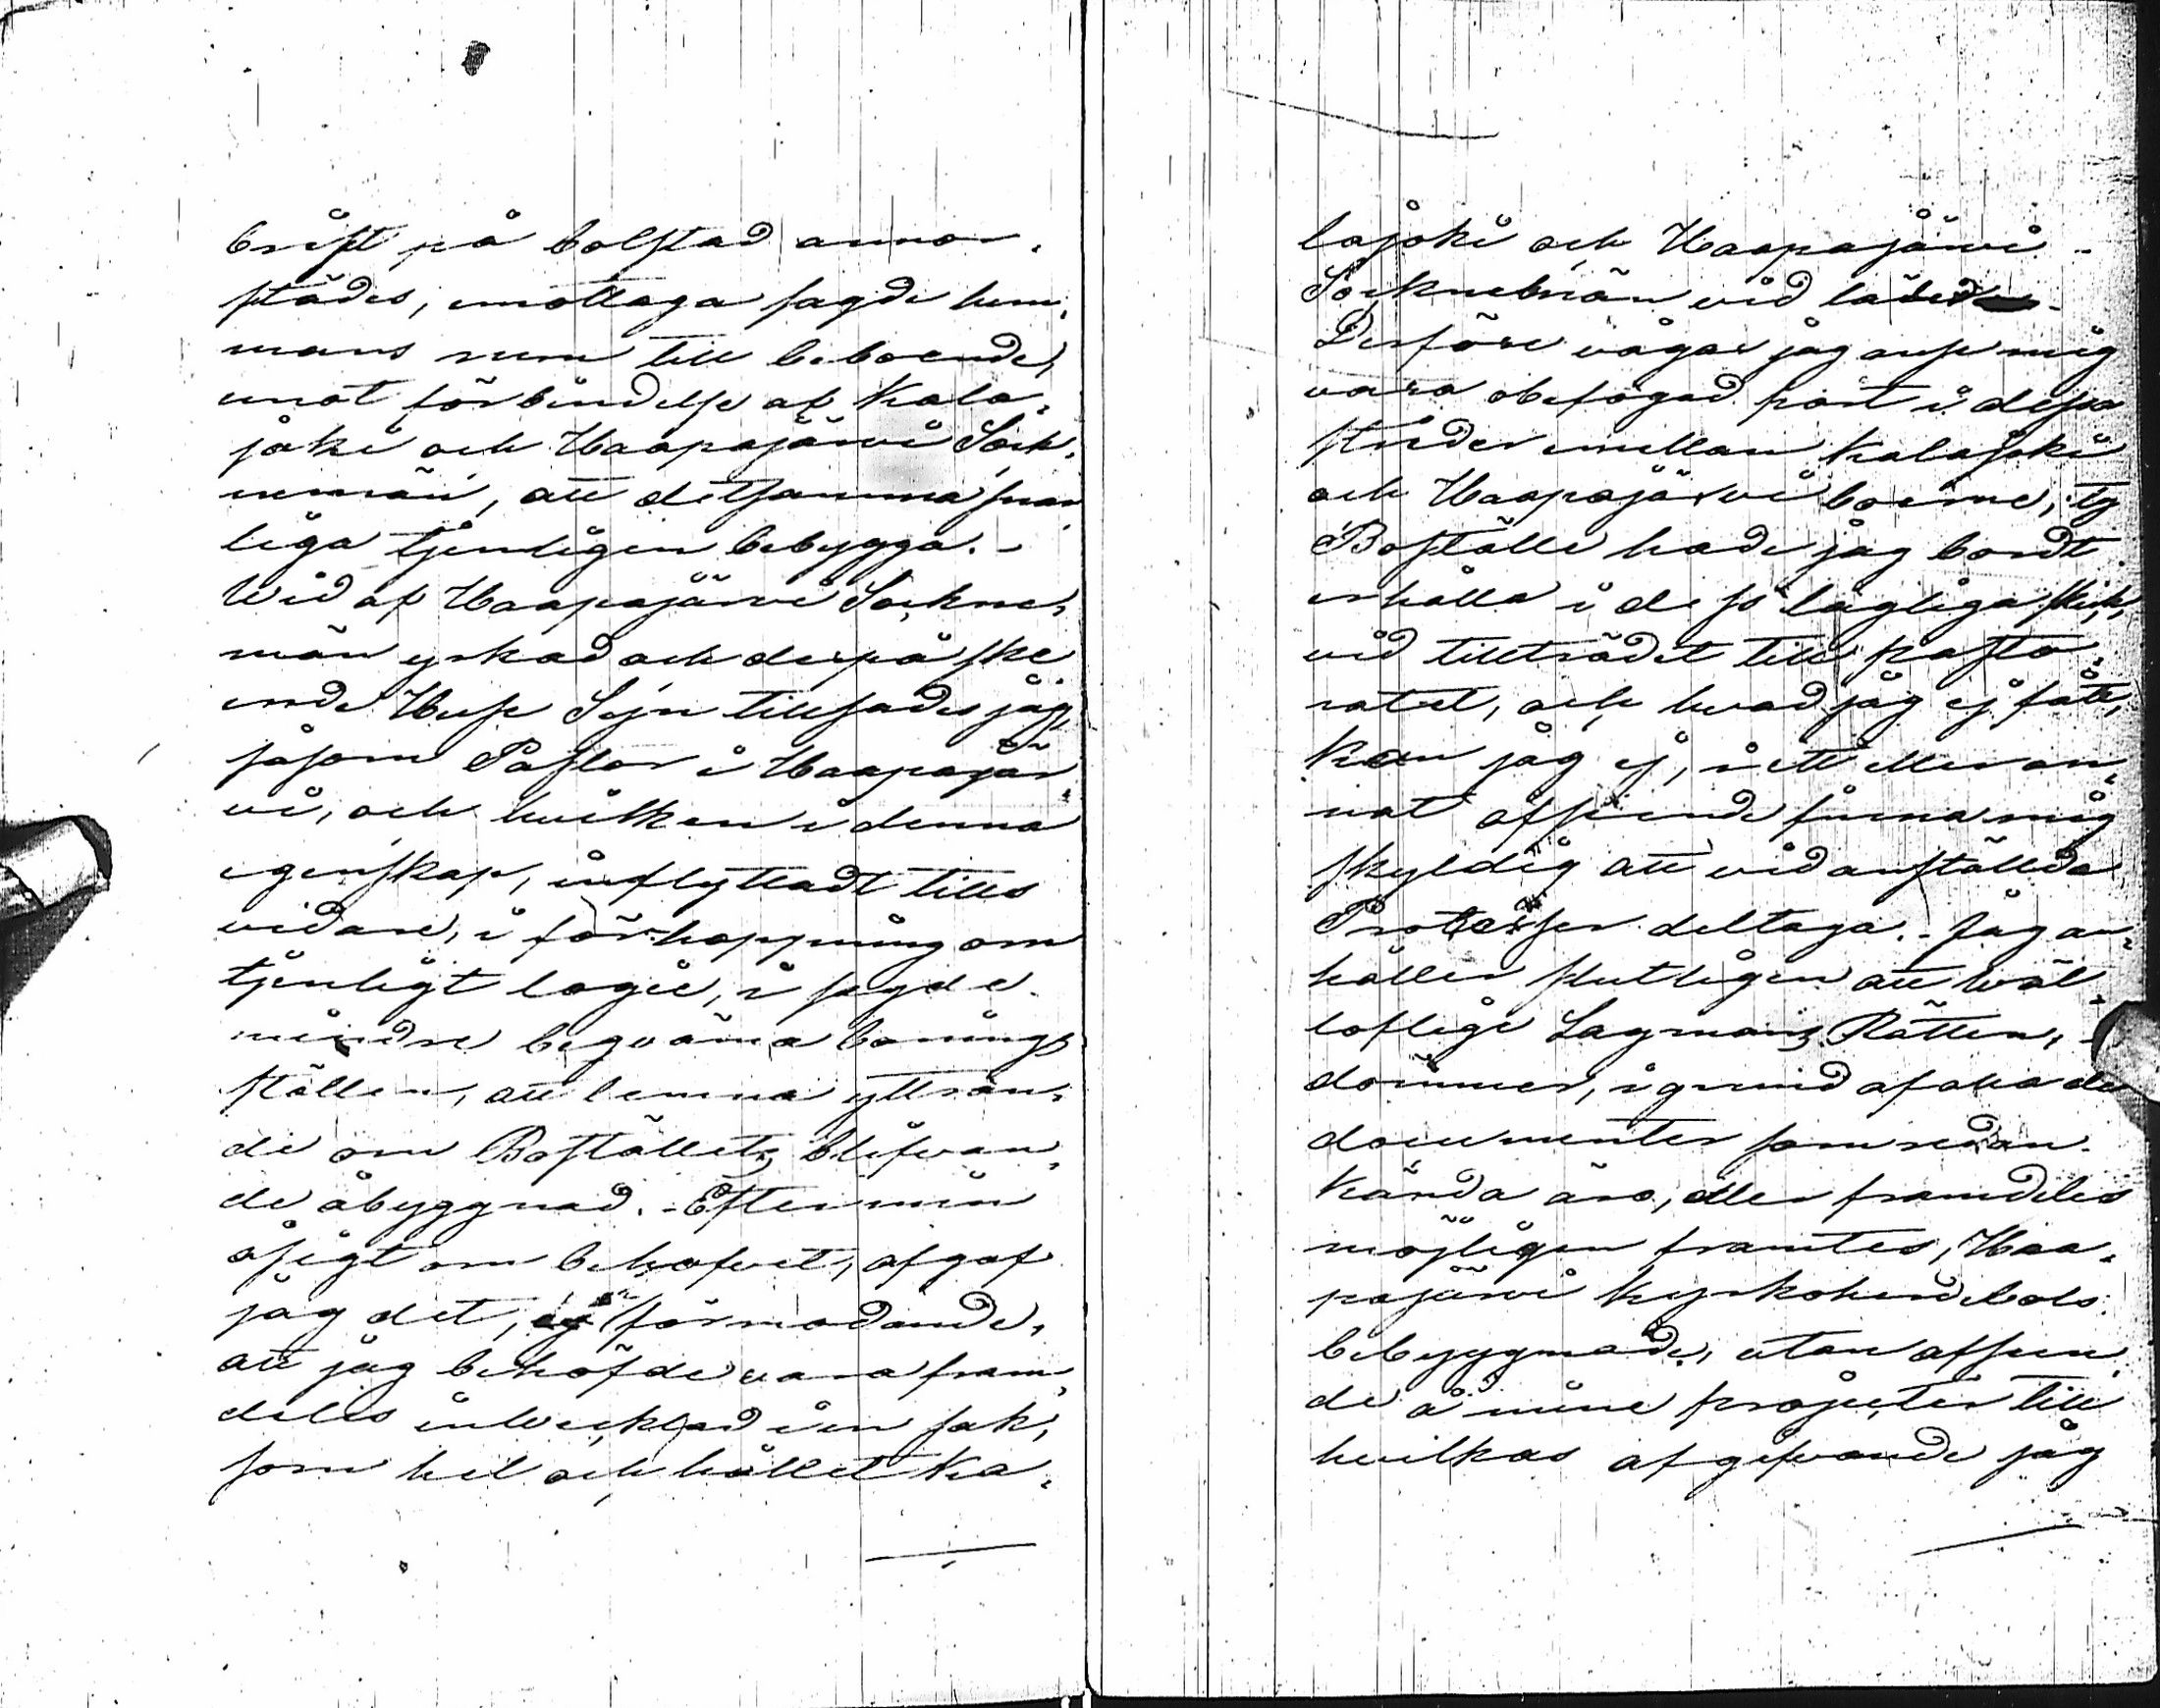 brist på bolstad annor-
städes, emottaga sagde hem-
mans rum till beboende,
emot förbindelse af Kala-
joki och Haapajärwi Sock-
nemän, att detsamma snar-
liga tjenligen bebygga. -
Wid af Haapajärwi Sockne-
män yrkad och derpå ske
ende Huse Syn tillsades jag,
såsom Pastor i Haapajär-
vi, och hvilken i denna
egenskap, inflyttadt tills
vidare, i förhoppning om
tjenligt logie, i sagde
mindre beqväma bonings
ställen, att lemna yttran-
de om Boställets blifwan-
de åbyggnad. - Efter min
åsigt om behofvet, afgaf
jag det, ej förmodande,
att jag behöfde vara fram-
deles inwecklad i en sak,
som hel och hållet Ka-
lajoki och Haapajärwi -
Socknebnän vid låded
Derföre vågar jag anse mig
vara obefogad part i dessa
strider emellan Kalajoki
och Haapajärvi boerne, ty
Boställe hade jag bordt
erhålla i dess lagliga skick,
vid tillträdet till pasto-
ratet, och hvad jag ej fått,
kan jag ej, i ett eller an-
nat afseende finna mig
skyldig att vid anställda
Processer deltaga. - Jag an-
håller slutligen att Wäl-
loflige Lagmans Rätten,
dömmer, i grund af alla de
documenter som redan
kända äro, eller framdeles
möjligen framtes, Haa-
pajärvi kyrkoherdebols
bebyggnade, utan afseen-
de å mine projecter till
hvilkas afgifvande jag